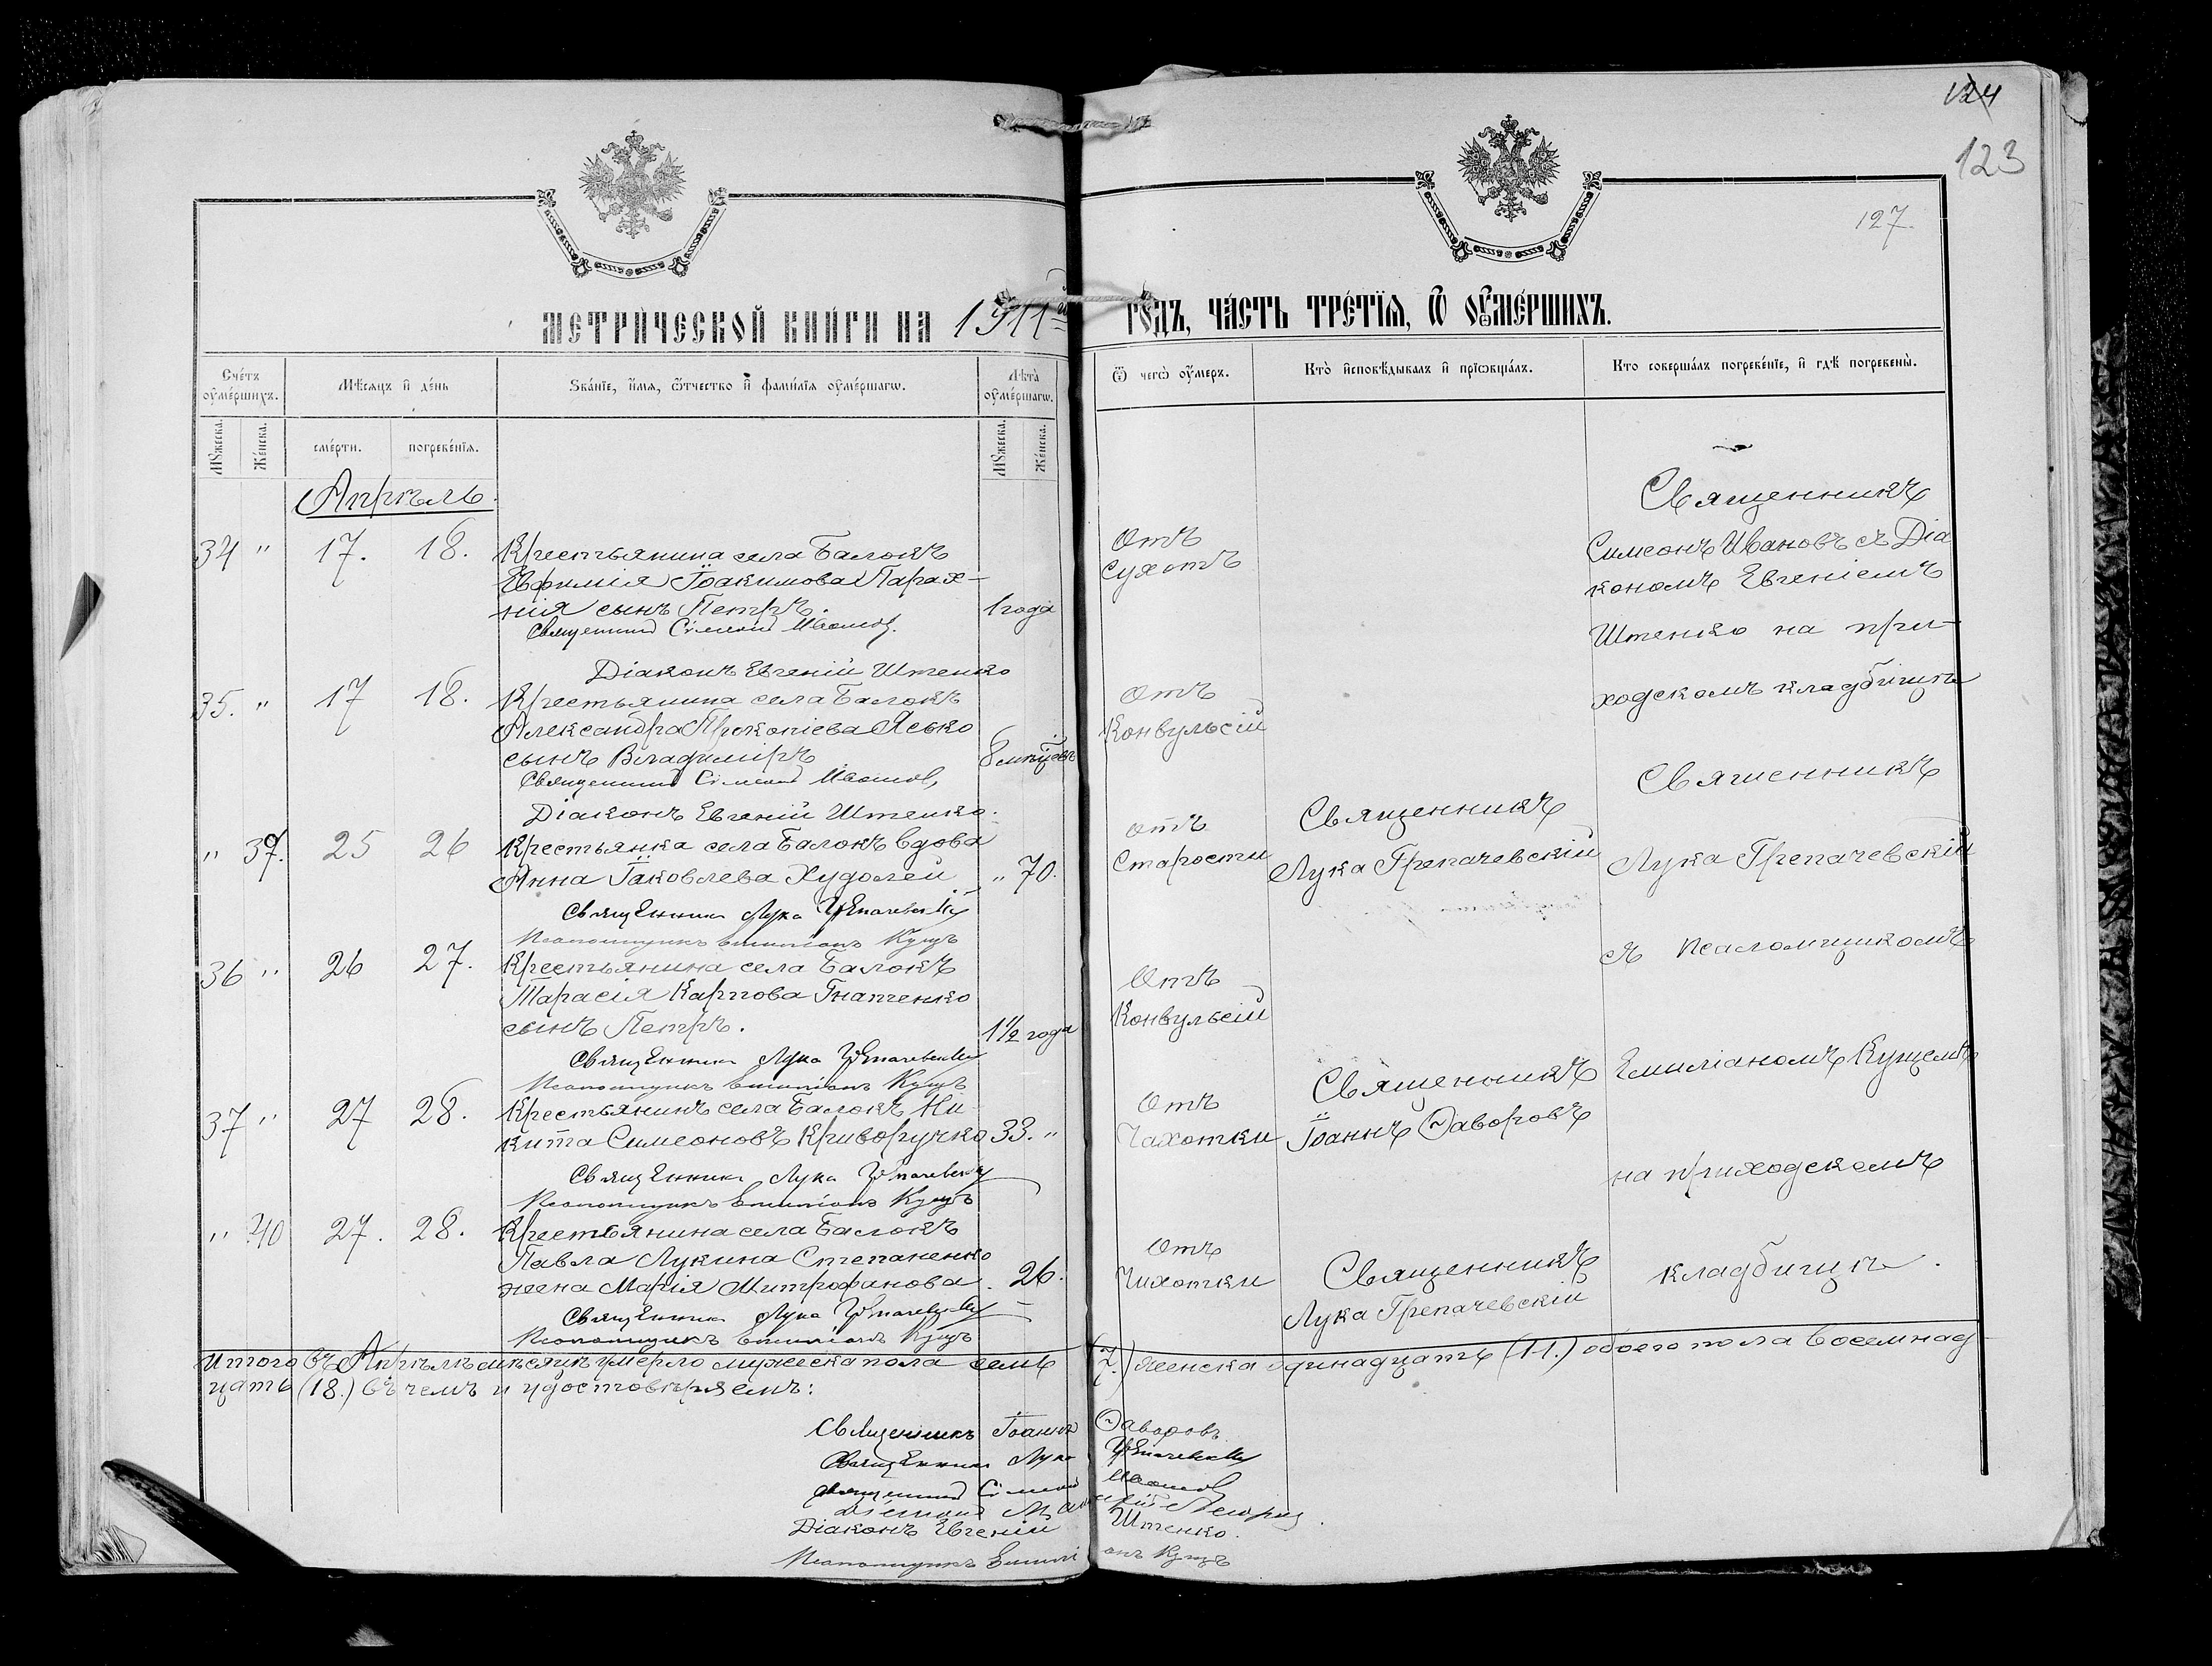 124
123
127.
МЕТРИЧЕСКОЙ КНИГИ НА 1911й ГОДЪ, ЧАСТЬ ТРЕТІЯ, Ѿ ОУМЕРШИХЪ.
Счетъ оумершихъ.
Мѣсяцъ и день
Званіе, имя, отчество и фамилія оумершагѡ.
Лѣта оумершагѡ.
Ѿ чегѡ оумеръ.
Кто исповѣдывалъ и пріобщалъ.
Кто совершалъ погребеніе, и гдѣ погребены.
Мужеска.
Женска.
смерти.
погребенія.
Мужеска.
Женска.
Апрѣль.
34 " 17. 18. Крестьянина села Балокъ
Евфимія Іоакимова Парах-
нія сынъ Петръ. 1 года
Отъ
сухотъ
Священникъ
Симеонъ Ивановъ съ Діа
кономъ Евгеніемъ
Штенко на при-
ходскомъ кладбищѣ
Священникъ Сѵмеонъ Ивановъ.
Діаконъ Евгеній Штенко
35. " 17 18. Крестьянина села Балокъ
Александра Прокопіева Ясько
сынъ Владиміръ
Отъ
Конвульсій
Священникъ Сѵмеонъ Ивановъ,
Діаконъ Евгеній Штенко.
" 39. 25 26 Крестьянка села Балокъ вдова
Анна Іаковлева Худолей " 70.
отъ
Старости
Священникъ
Лука Грепачевскій
Священникъ
Лука Грепачевскій
съ псаломщикомъ
Емиліаномъ Кущемъ
на приходскомъ
кладбищѣ.
Священникъ Лука Грепачевскій
Псаломщикъ Емиліанъ Кущъ
36 " 26 27. Крестьянина села Балокъ
Тарасія Карпова Гнатенко
сынъ Петръ. 1 1/2 года
Отъ
Конвульсій
Священникъ Лука Грепачевскій
Псаломщикъ Емиліанъ Кущъ
37 " 27 28. Крестьянинъ села Балокъ Ни
кита Симеоновъ Криворучко 33. "
Отъ
Чахотки
Священникъ
Іоаннъ Ѳаворовъ
Священникъ Лука Грепачевскій
Псаломщикъ Емиліанъ Кущъ
" 40 27. 28. Крестьянина села Балокъ
Павла Лукина Степаненко
жена Марія Митрофанова. 26.
Отъ
Чихотки
Священникъ
Лука Грепачевскій
Священникъ Лука Грепачевскій
Псаломщикъ Емиліанъ Кущъ
Итого въ Апрѣлѣ мѣсяцѣ умерло мужеска пола семь (7.) женска одинадцать (11.) обоего пола восемнад
цать (18.) въ чемъ и удостовѣряемъ:
Священникъ Іоаннъ Ѳаворовъ
Священникъ Лука Грепачевскій
Священникъ Сѵмеонъ Ивановъ
Діаконъ Евгеній Штенко.
Псаломщикъ Емиліанъ Кущъ